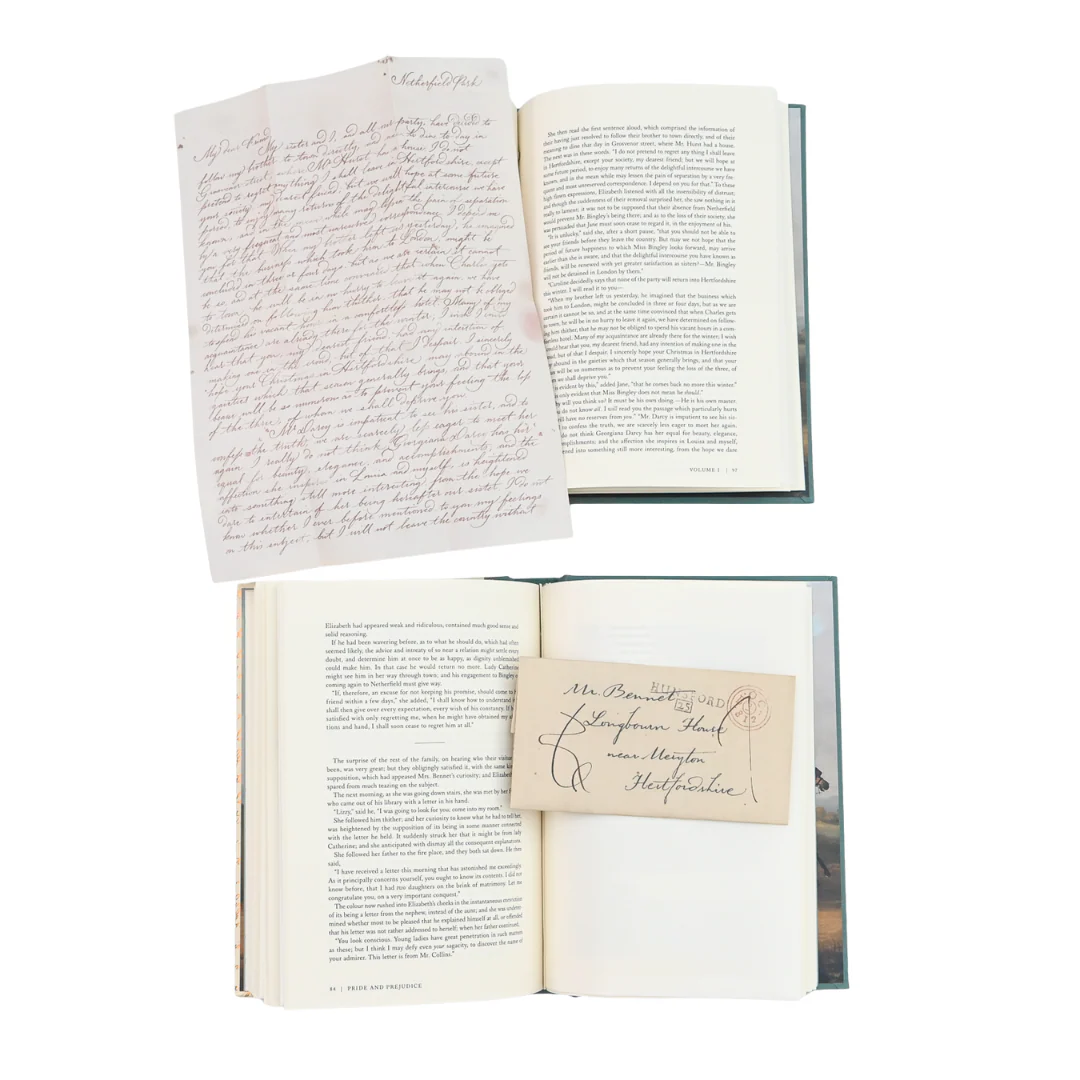 Netherfield Park
My dear Friend,
My sister and I and all our party, have decided to
follow my brother to town directly, and mean to dine to-day in
Grosvenor street, where Mr. Hurst has a house. I do not
pretend to regret anything I shall leave in Hertfordshire, except
your society, my dearest friend; but we will hope at some future
period, to enjoy many returns of the delightful intercourse we have
known, and in the mean while may lessen the pain of separation
by a very frequent and most unreserved correspondence. I depend on
you for that. When my brother left us yesterday, he imagined
that the business which took him to London, might be
concluded in three or four days, but as we are certain it cannot
be so, and at the same time convinced that when Charles gets
to town, he will be in no hurry to leave it again, we have
determined on following him thither, that he may not be obliged
to spend his vacant hours in a comfortless hotel. Many of my
acquaintance are already there for the winter; I wish I could
hear that you, my dearest friend, had any intention of
making one in the croud, but of that I despair. I sincerely
hope your Christmas in Hertfordshire may abound in the
gaieties which that season generally brings, and that your
beaux will be so numerous as to prevent your feeling the loss
of the three, of whom we shall deprive you.
Mr. Darcy is impatient to see his sister, and to
confess the truth, we are scarcely less eager to meet her
again. I really do not think Georgiana Darcy has her
equal for beauty, elegance, and accomplishments; and the
affection she inspires in Louisa and myself, is heightened
into something still more interesting, from the hope we
dare to entertain of her being hereafter our sister. I do not
know whether I ever before mentioned to you my feelings
on this subject, but I will not leave the country without
She then read the first sentence aloud, which comprised the information of
their having just resolved to follow their brother to town directly, and of their
meaning to dine that day in Grosvenor street, where Mr. Hurst had a house.
The next was in these words. "I do not pretend to regret any thing I shall leave
in Hertfordshire, except your society, my dearest friend; but we will hope at
some future period, to enjoy many returns of the delightful intercourse we have
known, and in the mean while may lessen the pain of separation by a very fre-
quent and most unreserved correspondence. I depend on you for that." To these
high flown expressions, Elizabeth listened with all the insensibility of distrust;
and though the suddenness of their removal surprised her, she saw nothing in it
really to lament; it was not to be supposed that their absence from Netherfield
would prevent Mr. Bingley's being there; and as to the loss of their society, she
was persuaded that Jane must soon cease to regard it, in the enjoyment of his.
"It is unlucky," said she, after a short pause, "that you should not be able to
see your friends before they leave the country. But may we not hope that the
period of future happiness to which Miss Bingley looks forward, may arrive
earlier than she is aware, and that the delightful intercourse you have known as
friends, will be renewed with yet greater satisfaction as sisters?—Mr. Bingley
will not be detained in London by them."
"Caroline decidedly says that none of the party will return into Hertfordshire
this winter. I will read it to you—
"When my brother left us yesterday, he imagined that the business which
took him to London, might be concluded in three or four days, but as we are
certain it cannot be so, and at the same time convinced that when Charles gets
to town, he will be in no hurry to leave it again, we have determined on follow-
ing him thither, that he may not be obliged to spend his vacant hours in a com-
fortless hotel. Many of my acquaintance are already there for the winter; I wish
could hear that you, my dearest friend, had any intention of making one in the
croud, but of that I despair. I sincerely hope your Christmas in Hertfordshire
may abound in the gaieties which that season generally brings, and that your
will be so numerous as to prevent your feeling the loss of the three, of
whom we shall deprive you."
is evident by this," added Jane, "that he comes back no more this winter."
only evident that Miss Bingley does not mean he should."
will you think so? It must be his own doing.—He is his own master.
do not know all. I will read you the passage which particularly hurts
will have no reserves from you." "Mr. Darcy is impatient to see his sis-
to confess the truth, we are scarcely less eager to meet her again.
do not think Georgiana Darcy has her equal for beauty, elegance,
accomplishments; and the affection she inspires in Louisa and myself,
into something still more interesting, from the hope we dare
VOLUME I | 97
Elizabeth had appeared weak and ridiculous, contained much good sense and
solid reasoning.
If he had been wavering before, as to what he should do, which had often
seemed likely, the advice and intreaty of so near a relation might settle every
doubt, and determine him at once to be as happy, as dignity unblemished
could make him. In that case he would return no more. Lady Catherine
might see him in her way through town; and his engagement to Bingley of
coming again to Netherfield must give way.
"If, therefore, an excuse for not keeping his promise, should come to his
friend within a few days," she added, "I shall know how to understand it. I
shall then give over every expectation, every wish of his constancy. If he is
satisfied with only regretting me, when he might have obtained my affec-
tions and hand, I shall soon cease to regret him at all."
The surprise of the rest of the family, on hearing who their visitor had
been, was very great; but they obligingly satisfied it, with the same kind of
supposition, which had appeased Mrs. Bennet's curiosity; and Elizabeth was
spared from much teazing on the subject.
The next morning, as she was going down stairs, she was met by her father,
who came out of his library with a letter in his hand.
"Lizzy," said he, "I was going to look for you; come into my room."
She followed him thither; and her curiosity to know what he had to tell her,
was heightened by the supposition of its being in some manner connected
with the letter he held. It suddenly struck her that it might be from lady
Catherine; and she anticipated with dismay all the consequent explanations.
She followed her father to the fire place, and they both sat down. He then
said,
"I have received a letter this morning that has astonished me exceedingly.
As it principally concerns yourself, you ought to know its contents. I did not
know before, that I had two daughters on the brink of matrimony. Let me
congratulate you, on a very important conquest."
The colour now rushed into Elizabeth's cheeks in the instantaneous conviction
of its being a letter from the nephew, instead of the aunt; and she was undeter-
mined whether most to be pleased that he explained himself at all, or offended
that his letter was not rather addressed to herself; when her father continued,
"You look conscious. Young ladies have great penetration in such matters
as these; but I think I may defy even your sagacity, to discover the name of
your admirer. This letter is from Mr. Collins."
| PRIDE AND PREJUDICE
HUNSFORD
25
Mr. Bennet
Longbourn House
near Meryton
Hertfordshire